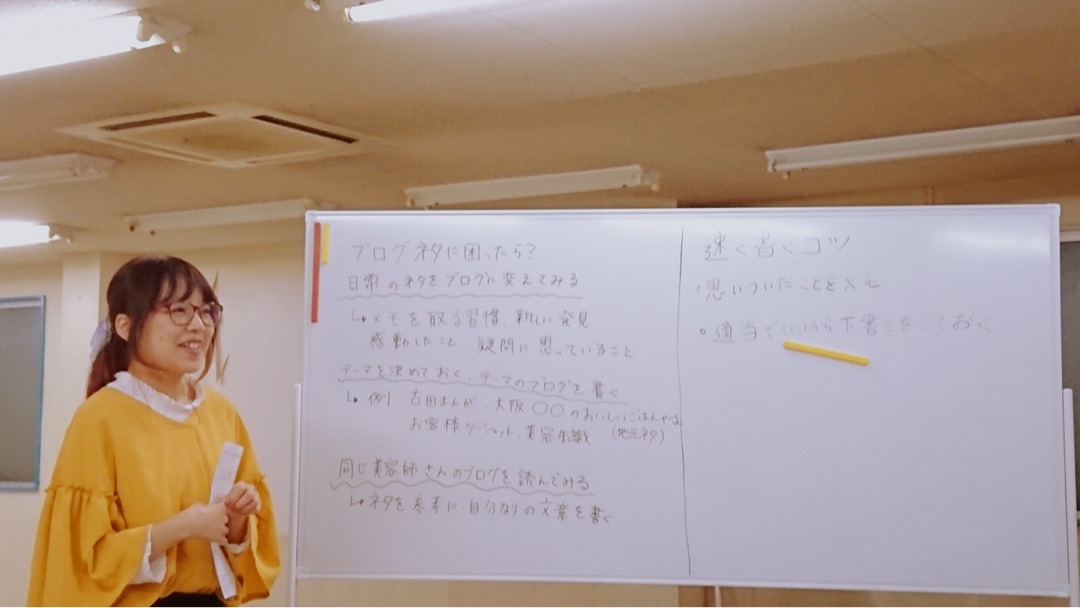 ブログネタに困ったら?
日常のネタをブログに変えてみる
↳メモを取る習慣、新しい発見
感動したこと 疑問に思っていること
テーマを決めておく、テーマのブログを書く
↳例) 古田まんが、大阪〇〇のおいしいごはんやさん
お客様ツーショット、美容知識 (地元ネタ)
同じ美容師さんのブログを読んでみる
↳ネタを参考に、自分なりの文章を書く
速く書くコツ
・思いついたことをメモ
・適当でいいから下書きをしておく